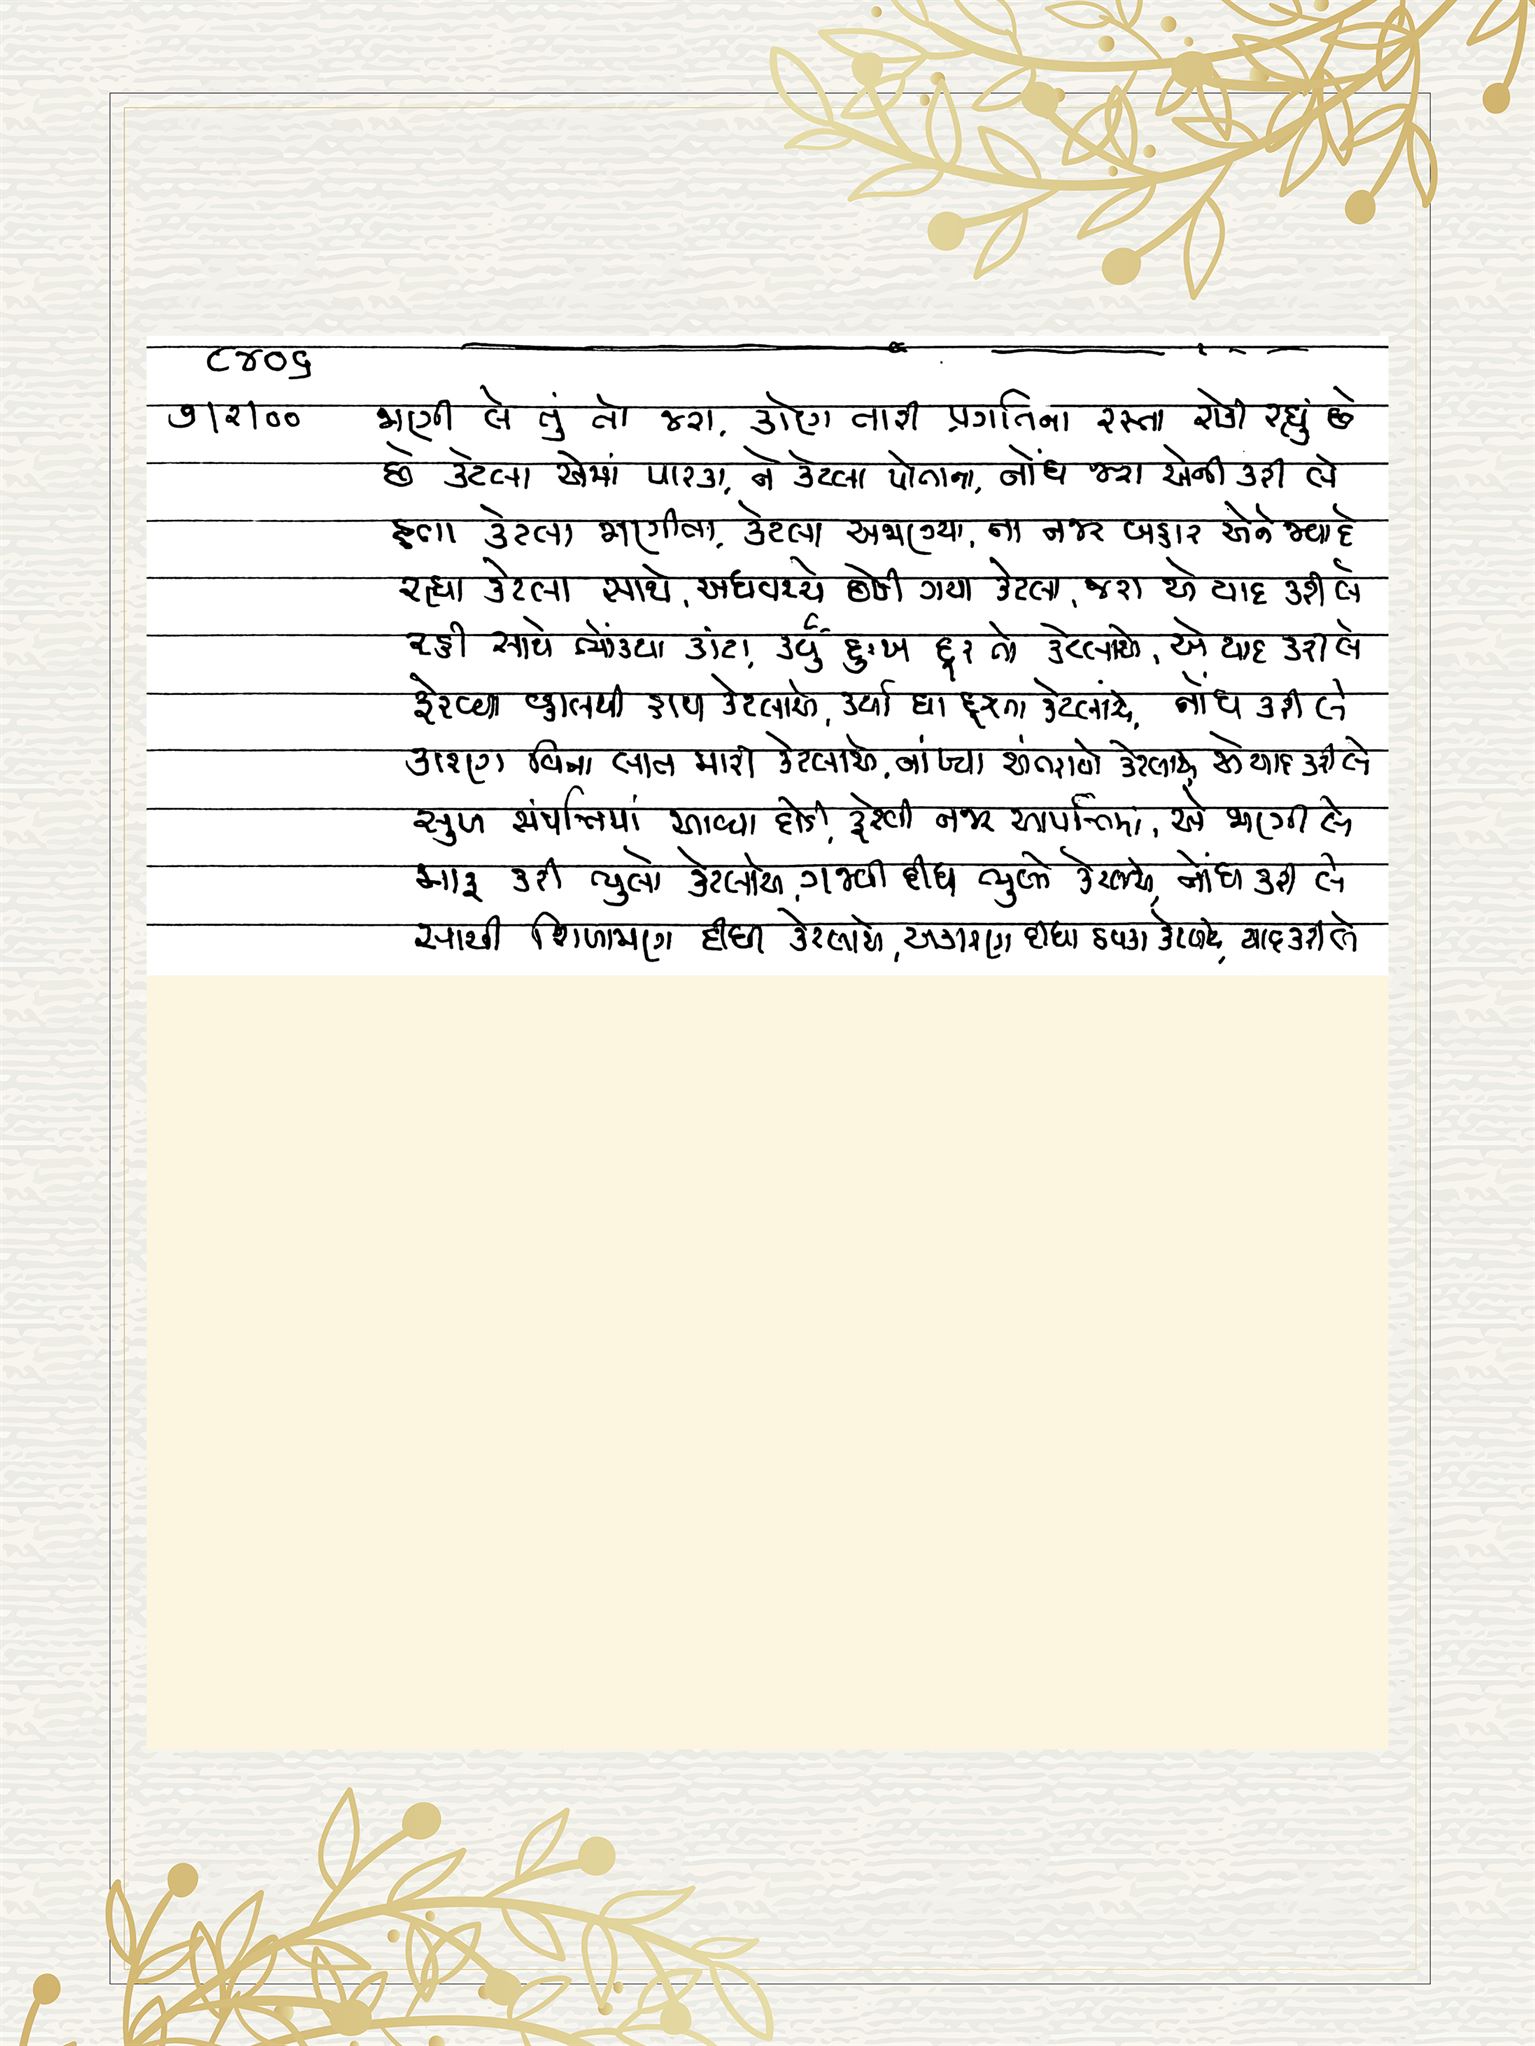 ૮૪૦૬
૭/૨/૦૦ જાણી લે તું તો જરા, કોણ તારી પ્રગતિના રસ્તા રોકી રહ્યું છે
છે કેટલા એમાં પારકા, ને કેટલા પોતાના, નોંધ જરા એની કરી લે
હતા કેટલા જાણીતા, કેટલા અજાણ્યા, ના નજર બહાર એને જવા દે
રહ્યા કેટલા સાથે, અધવચ્ચે છોડી ગયા કેટલા, જરા એ યાદ કરી લે
રહી સાથે ભોંક્યા કાંટા, કર્યું દુઃખ દૂર તો કેટલાએ, એ યાદ કરી લે
ફેરવ્યા વ્હાલથી હાથ કેટલાએ, કર્યા ઘા દૂરતા કેટલાંયે, નોંધ કરી લે
કારણ વિના લાત મારી કેટલાએ, નાંખ્યા અંતરાયો કેટલાએ, એ યાદ કરી લે
સુખ સંપત્તિમાં આવ્યા દોડી, ફેરવી નજર આપત્તિમાં, એ જાણી લે
માફ કરી ભૂલો કેટલાએ, ગજવી દીધી ભૂલો કેટલાએ, નોંધ કરી લે
સાચી શિખામણ દીધી કેટલાએ, અકારણ દીધા ઠપકા કેટલાએ, યાદ કરી લે